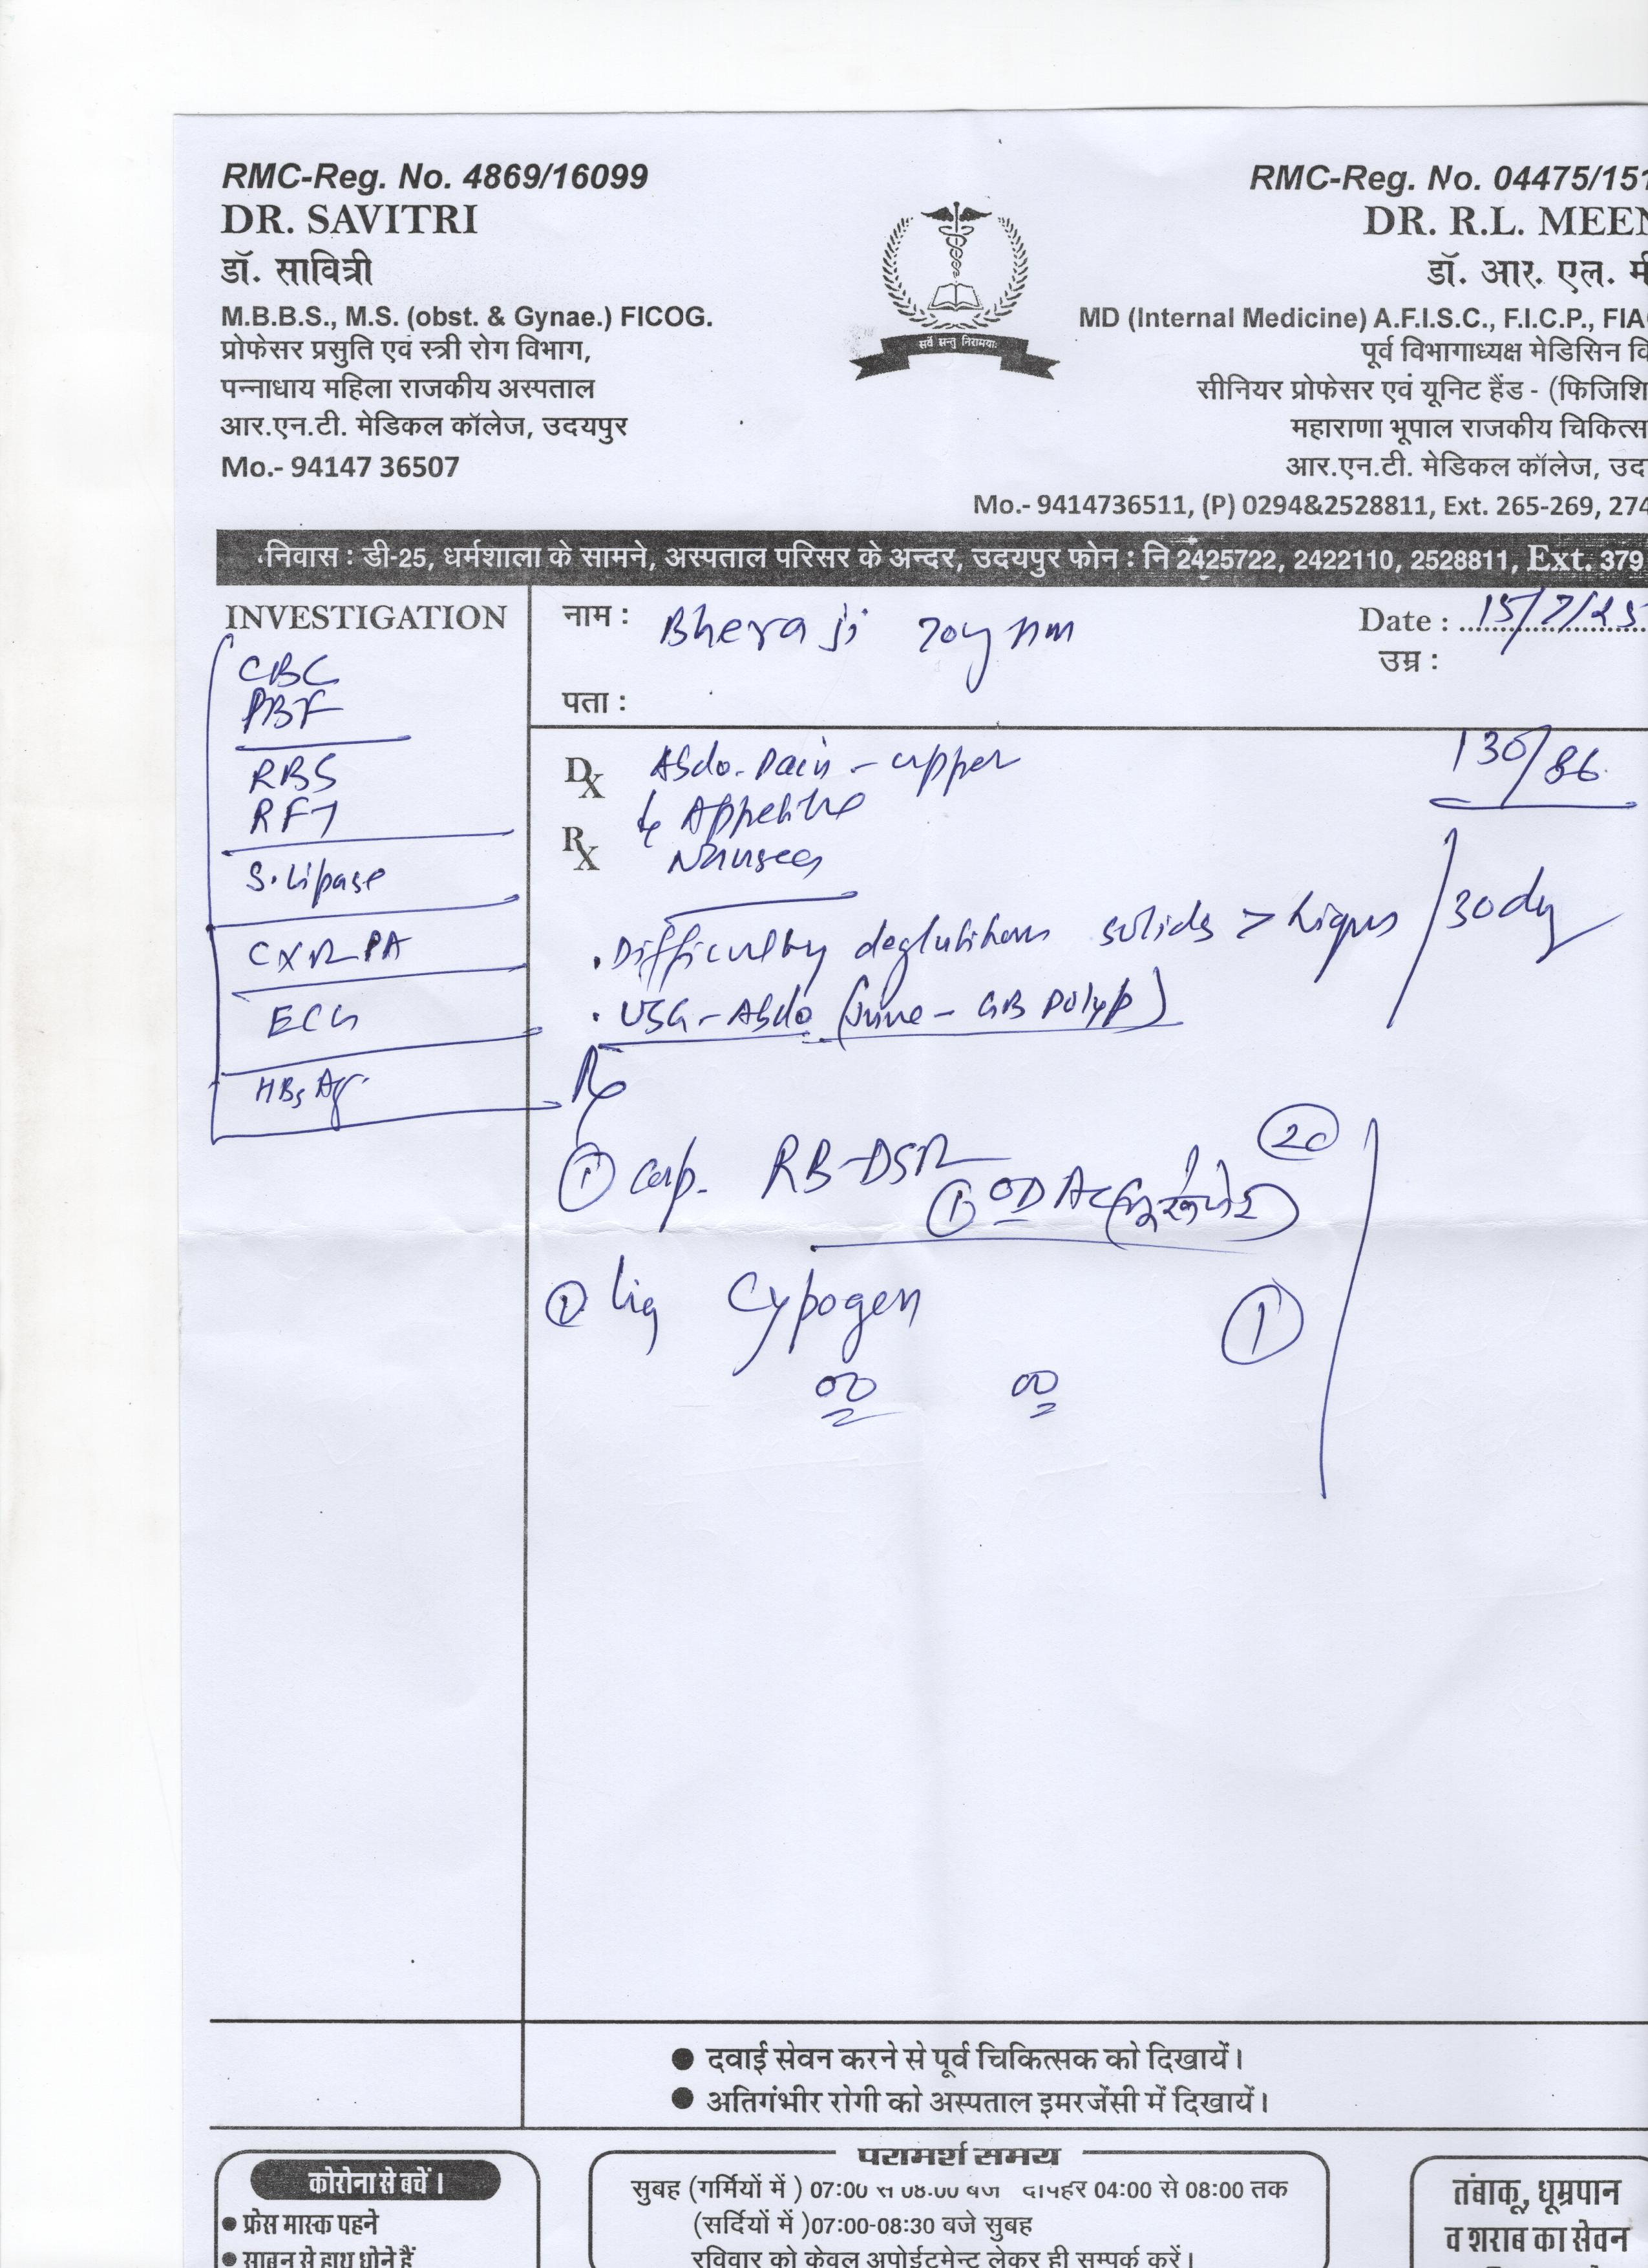 RMC-Reg. No. 4869/16099
DR. SAVITRI
डॉ. सावित्री
M.B.B.S., M.S. (obst. & Gynae.) FICOG.
प्रोफेसर प्रसुति एवं स्त्री रोग विभाग,
पन्नाधाय महिला राजकीय अस्पताल
आर.एन.टी. मेडिकल कॉलेज, उदयपुर
Mo.- 94147 36507
सर्वे सन्तु निरामयाः
RMC-Reg. No. 04475/151
DR. R.L. MEEN
डॉ. आर. एल. मी
MD (Internal Medicine) A.F.I.S.C., F.I.C.P., FIA
पूर्व विभागाध्यक्ष मेडिसिन वि
सीनियर प्रोफेसर एवं यूनिट हैड - (फिजिशि
महाराणा भूपाल राजकीय चिकित्स
आर.एन.टी. मेडिकल कॉलेज, उद
Mo.- 9414736511, (P) 0294&2528811, Ext. 265-269, 274
निवास : डी-25, धर्मशाला के सामने, अस्पताल परिसर के अन्दर, उदयपुर फोन : नि 2425722, 2422110, 2528811, Ext. 379
INVESTIGATION
CBC
PBF
RBS
RFT
S. Lipase
CXR PA
ECG
HBsAg
नाम : Bhera ji 70y
Date : 15/7/25
उम्र :
पता :
Dx Abdo. Pain - upper
130/86
↓ Appetite
Rx Nausea
. Difficulty deglutition solids > liquis / 30 dy
. USG - Abdo (June - GB Polyp)
Rx
① cap. RB-DSR 20
① OD AC
② Liq Cypogen ①
दवाई सेवन करने से पूर्व चिकित्सक को दिखायें।
अतिगंभीर रोगी को अस्पताल इमरजेंसी में दिखायें।
कोरोना से बचें।
● फ्रेस मास्क पहने
● साबुन से हाथ धोने हैं
परामर्श समय
सुबह (गर्मियों में ) 07:00 से 08:00 बजे दोपहर 04:00 से 08:00 तक
(सर्दियों में )07:00-08:30 बजे सुबह
रविवार को केवल अपोईटमेन्ट लेकर ही सम्पर्क करें।
तंबाकू, धूम्रपान
व शराब का सेवन